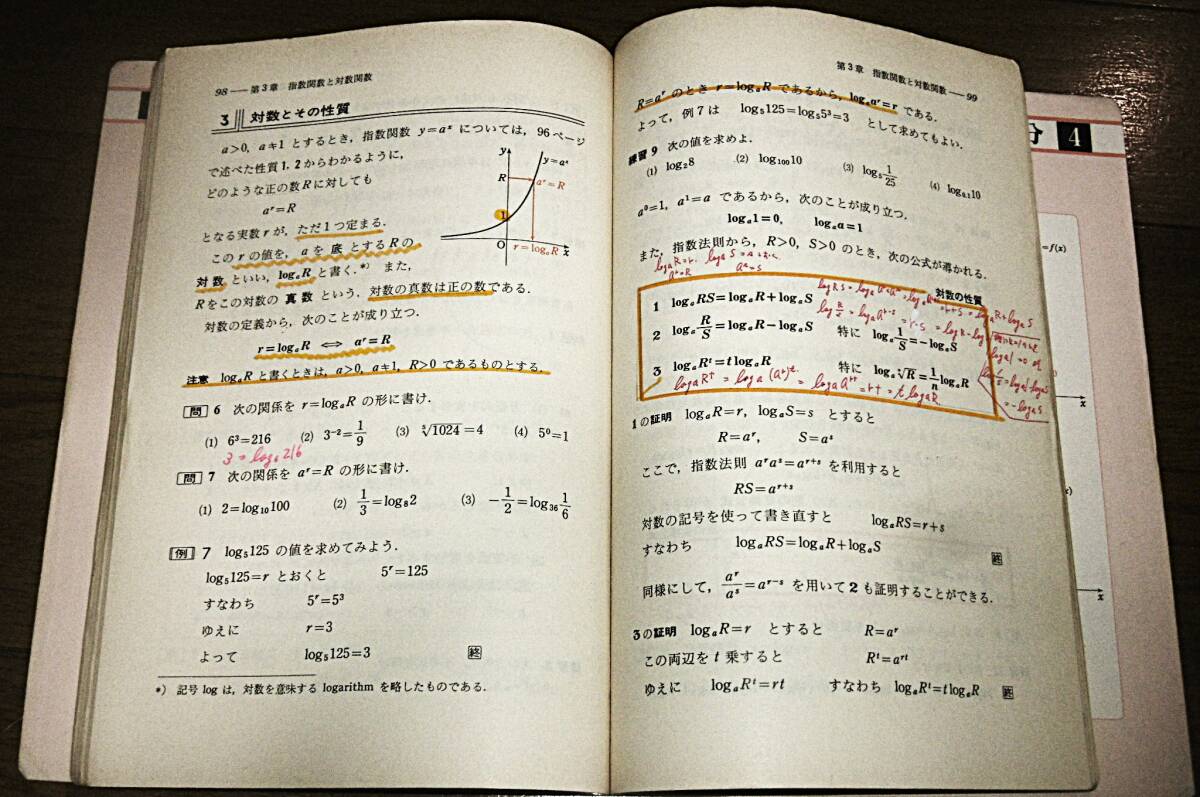 98 ── 第3章 指数関数と対数関数
3 対数とその性質
a>0, a≠1 とするとき, 指数関数 y=aˣ については, 96 ページ
で述べた性質1, 2からわかるように,
どのような正の数 R に対しても
aʳ=R
となる実数 r が, ただ1つ定まる.
この r の値を, a を 底 とする R の
対数 といい, logₐR と書く.*) また,
R をこの対数の 真数 という. 対数の真数は正の数である.
対数の定義から, 次のことが成り立つ.
r=logₐR ⟺ aʳ=R
注意 logₐR と書くときは, a>0, a≠1, R>0 であるものとする.
y
y=aˣ
R
aʳ=R
1
O
r=logₐR
x
問 6 次の関係を r=logₐR の形に書け.
(1) 6³=216 (2) 3⁻²=1/9 (3) ⁵√1024=4 (4) 5⁰=1
3=log₆216
問 7 次の関係を aʳ=R の形に書け.
(1) 2=log₁₀100 (2) 1/3=log₈2 (3) −1/2=log₃₆1/6
例 7 log₅125 の値を求めてみよう.
log₅125=r とおくと 5ʳ=125
すなわち 5ʳ=5³
ゆえに r=3
よって log₅125=3 終
*) 記号 log は, 対数を意味する logarithm を略したものである.
第3章 指数関数と対数関数 ── 99
R=aʳ のとき r=logₐR であるから, logₐaʳ=r である.
よって, 例7は log₅125=log₅5³=3 として求めてもよい.
練習 9 次の値を求めよ.
(1) log₂8 (2) log₁₀₀10 (3) log₅1/25 (4) log₀.₁10
a⁰=1, a¹=a であるから, 次のことが成り立つ.
logₐ1=0, logₐa=1
また, 指数法則から, R>0, S>0 のとき, 次の公式が導かれる.
logₐR=r. logₐS=s
aʳ=R aˢ=S
対数の性質
1 logₐRS=logₐR+logₐS
2 logₐR/S=logₐR−logₐS 特に logₐ1/S=−logₐS
3 logₐRᵗ=t logₐR 特に logₐⁿ√R=1/n logₐR
logₐRᵗ=logₐ(aʳ)ᵗ=logₐaʳᵗ=rt=t logₐR
=−logₐS
1の証明 logₐR=r, logₐS=s とすると
R=aʳ, S=aˢ
ここで, 指数法則 aʳaˢ=aʳ⁺ˢ を利用すると
RS=aʳ⁺ˢ
対数の記号を使って書き直すと logₐRS=r+s
すなわち logₐRS=logₐR+logₐS 終
同様にして, aʳ/aˢ=aʳ⁻ˢ を用いて 2 も証明することができる.
3の証明 logₐR=r とすると R=aʳ
この両辺を t 乗すると Rᵗ=aʳᵗ
ゆえに logₐRᵗ=rt すなわち logₐRᵗ=t logₐR 終
分 4
=f(x)
x
x